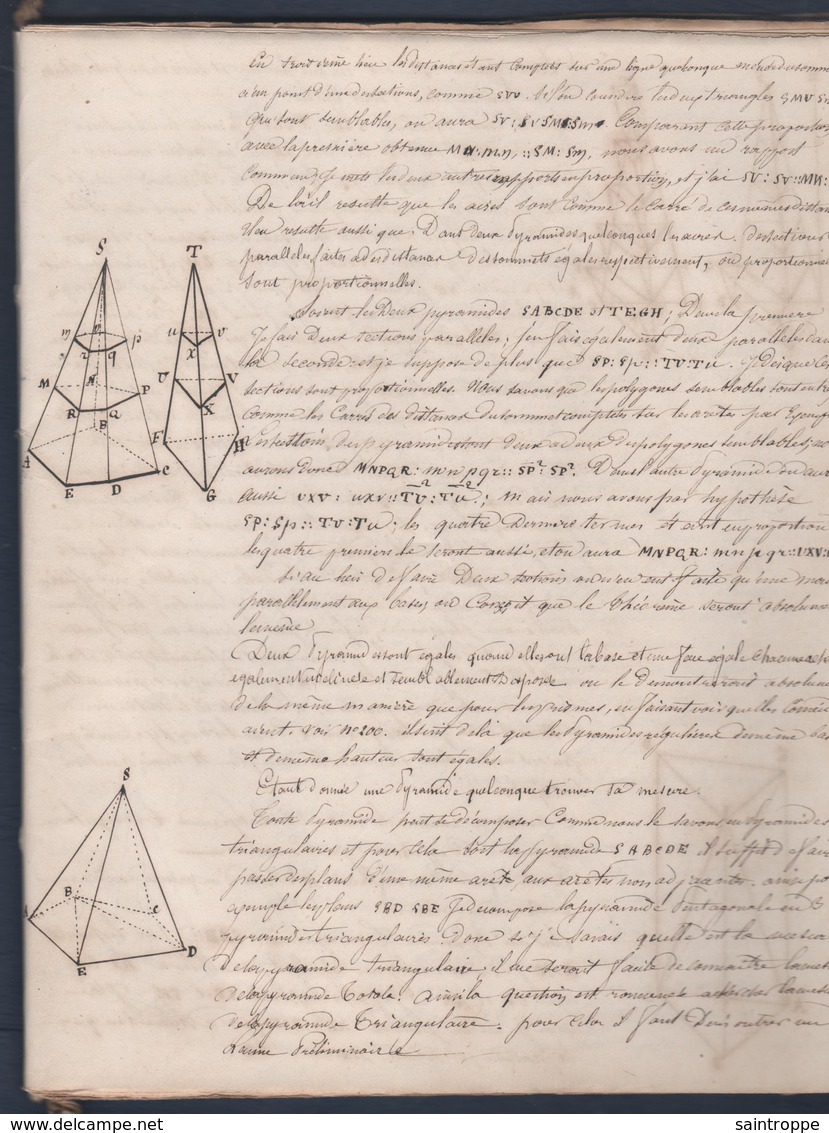 En troisième lieu les distances étant comptées sur une ligne quelconque menée du somm
a un point d'une des sections, comme SVU. Si l'on considère les deux triangles SMU S
qui sont semblables, on aura SV : Sv SM : Sm. Comparant cette proportion
avec la première obtenue MN : mn, :: SM : Sm, nous avons un rapport
commun je mets les deux autres rapports en proportion, et j'ai SV : Sv :: MN :
De la il resulte que les aires sont comme le carré de ces mêmes distan
Il en resulte aussi que : Dans deux Pyramides quelconques les aires des sections
paralleles faites a des distances des sommets égales respectivement, ou proportionnel
sont proportionnelles.
Soient les Deux pyramides SABCDE et TEGH ; Dans la première
Je fais Deux sections paralleles ; j'en fais également deux paralleles dans
la seconde et je suppose de plus que SP : Sp :: TU : Tu. Je dis que ces
sections sont proportionnelles. Nous savons que les polygones semblables sont entre
comme les Carrés des distances du sommet comptées sur les arêtes par Exemple
les sections des pyramides sont deux a deux des polygones semblables, no
aurons donc MNPQR : mnpqr :: SP² : Sp². Dans l'autre Pyramide on aura
aussi UXV : uxv :: TU² : Tu² ; mais nous avons par hypothèse
SP : Sp :: TU : Tu ; les quatre Derniers termes étant en proportion
les quatre premiers le seront aussi, et on aura MNPQR : mnpqr :: UXV :
Si au lieu d'avoir Deux sections on n'en eut faite qu'une menée
parallelement aux bases, on conçoit que le théorème seroit absolument
le même
Deux Pyramides sont égales quand elles ont la base et une face égale chacune
également inclinées et semblablement disposée on le demontreroit absolume
de la même manière que pour les prismes, en faisant voir qu'elles coinci
deraient. voir n° 200. il suit de là que les Pyramides régulières de même bas
et de même hauteur sont égales.
Etant donnée une Pyramide quelconque trouver sa mesure.
Toute Pyramide peut se décomposer comme nous le savons en Pyramides
triangulaires et pour cela soit la Pyramide SABCDE il suffit de faire
passer des plans d'une même arête, aux arêtes non adjacentes. ainsi po
exemple les plans SBD SBE Je décompose la pyramide Pentagonale en 3
pyramides triangulaires Donc si je savais quelle est la mesure
de la pyramide triangulaire, il me seroit facile de connaitre la mes
de la pyramide totale. Ainsi la question est ramenée a chercher la mes
de la pyramide triangulaire. pour cela il faut Demontrer un
Lemme Préliminaire
S T
m n p u v
r q x
M N P U V
R Q X
B F H
A C
E D G
S
B C
A D
E
saintroppe